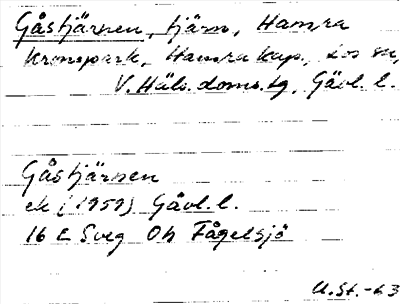 Gåstjärnen, tjärn, Hamra
kronopark, Hamra kap., Los sn,
V. Häls. doms. tg, Gävl. l.
Gåstjärnen
ek (1959) Gävl. l.
16 E Sveg Oh Fågelsjö
U.St.-63